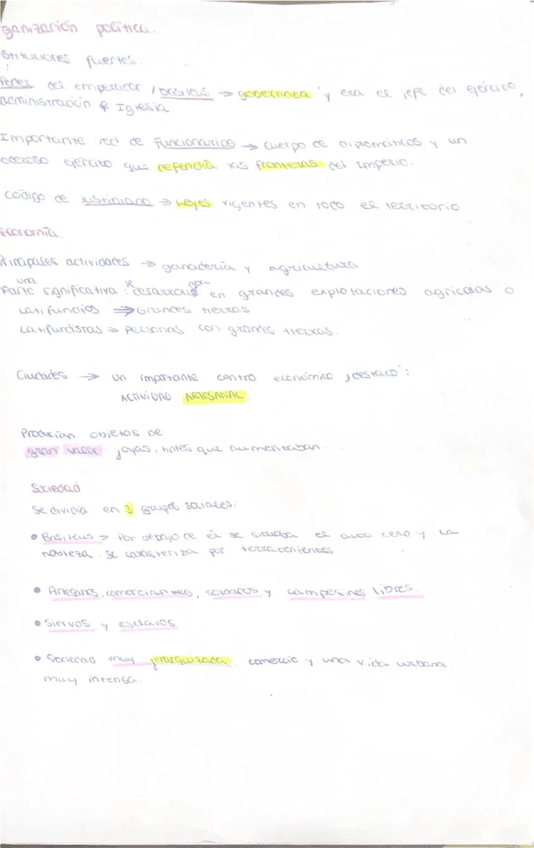 ganización política.
stituciones fuertes.
del emperador / basileus → gobernaba y era el jefe del ejército,
administración e Iglesia
Importante red de funcionarios → cuerpo de diplomáticos y un
ejército que defendía las fronteras del Imperio.
Código de Justiniano → Leyes vigentes en todo el territorio
Economía.
Principales actividades → ganadería y agricultura
una
Parte significativa: se desarrolló en grandes explotaciones agrícolas o
Latifundios ⇒ Grandes tierras
Latifundistas → Personas con grandes tierras.
Ciudades → Un importante centro económico, destacó:
ACTIVIDAD ARTESANAL.
Producían objetos de
gran valor joyas, que aumentaban
Sociedad
Se dividía en 3 grupos sociales:
• Basileus → Por debajo de él se situaba el alto clero y la
nobleza. Se caracteriza por terratenientes
• Artesanos, comerciantes, soldados y campesinos libres.
• Siervos y esclavos
• Sociedad muy jerarquizada comercio y una vida urbana
muy intensa.